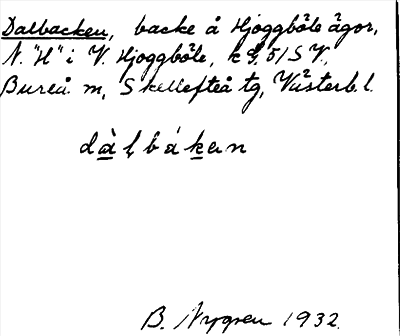 Dalbacken, backe å Hjoggböle ägor,
N. "H" i V. Hjoggböle, k 51 S V.,
Bureå m, Skellefteå tg, Västerb. l.
dàlbákan
B. Nygren 1932.